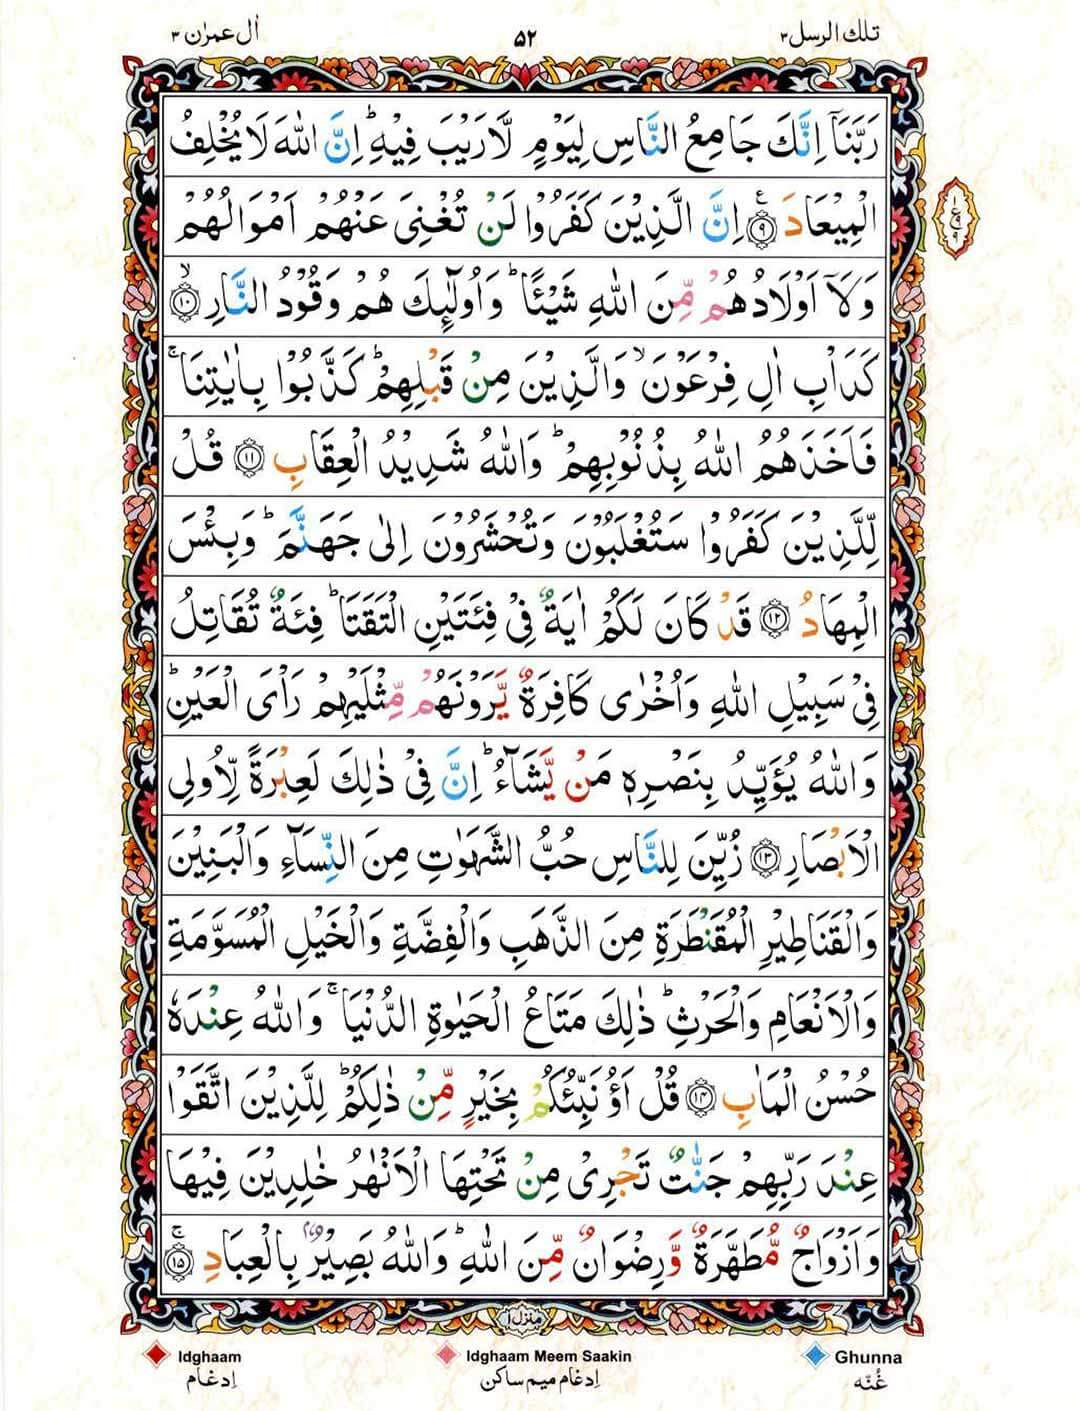 تلك الرسل ٣ ٥٢ اٰل عمرٰن ٣
رَبَّنَاۤ اِنَّكَ جَامِعُ النَّاسِ لِيَوْمٍ لَّا رَيْبَ فِيْهِ ؕ اِنَّ اللّٰهَ لَا يُخْلِفُ
الْمِيْعَادَ ۟ ﴿٩﴾ اِنَّ الَّذِيْنَ كَفَرُوْا لَنْ تُغْنِىَ عَنْهُمْ اَمْوَالُهُمْ
وَلَاۤ اَوْلَادُهُمْ مِّنَ اللّٰهِ شَيْـًٔا ؕ وَاُولٰٓئِكَ هُمْ وَقُوْدُ النَّارِ ۙ ﴿١٠﴾
كَدَاْبِ اٰلِ فِرْعَوْنَ ۙ وَالَّذِيْنَ مِنْ قَبْلِهِمْ ؕ كَذَّبُوْا بِاٰيٰتِنَا ۚ
فَاَخَذَهُمُ اللّٰهُ بِذُنُوْبِهِمْ ؕ وَاللّٰهُ شَدِيْدُ الْعِقَابِ ﴿١١﴾ قُلْ
لِّلَّذِيْنَ كَفَرُوْا سَتُغْلَبُوْنَ وَتُحْشَرُوْنَ اِلٰى جَهَنَّمَ ؕ وَبِئْسَ
الْمِهَادُ ﴿١٢﴾ قَدْ كَانَ لَكُمْ اٰيَةٌ فِىْ فِئَتَيْنِ الْتَقَتَا ؕ فِئَةٌ تُقَاتِلُ
فِىْ سَبِيْلِ اللّٰهِ وَاُخْرٰى كَافِرَةٌ يَّرَوْنَهُمْ مِّثْلَيْهِمْ رَاْىَ الْعَيْنِ ؕ
وَاللّٰهُ يُؤَيِّدُ بِنَصْرِهٖ مَنْ يَّشَآءُ ؕ اِنَّ فِىْ ذٰلِكَ لَعِبْرَةً لِّاُولِى
الْاَبْصَارِ ﴿١٣﴾ زُيِّنَ لِلنَّاسِ حُبُّ الشَّهَوٰتِ مِنَ النِّسَآءِ وَالْبَنِيْنَ
وَالْقَنَاطِيْرِ الْمُقَنْطَرَةِ مِنَ الذَّهَبِ وَالْفِضَّةِ وَالْخَيْلِ الْمُسَوَّمَةِ
وَالْاَنْعَامِ وَالْحَرْثِ ؕ ذٰلِكَ مَتَاعُ الْحَيٰوةِ الدُّنْيَا ۚ وَاللّٰهُ عِنْدَهٗ
حُسْنُ الْمَاٰبِ ﴿١٤﴾ قُلْ اَؤُنَبِّئُكُمْ بِخَيْرٍ مِّنْ ذٰلِكُمْ ؕ لِلَّذِيْنَ اتَّقَوْا
عِنْدَ رَبِّهِمْ جَنّٰتٌ تَجْرِىْ مِنْ تَحْتِهَا الْاَنْهٰرُ خٰلِدِيْنَ فِيْهَا
وَاَزْوَاجٌ مُّطَهَّرَةٌ وَّرِضْوَانٌ مِّنَ اللّٰهِ ؕ وَاللّٰهُ بَصِيْرٌۢ بِالْعِبَادِ ۚ ﴿١٥﴾
منزل ١
Idghaam Idghaam Meem Saakin Ghunna
اِدغام اِدغام میم ساکن غُنّه